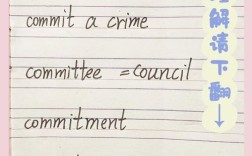 commit a crime
committee = council
commitment
解请下翻↓